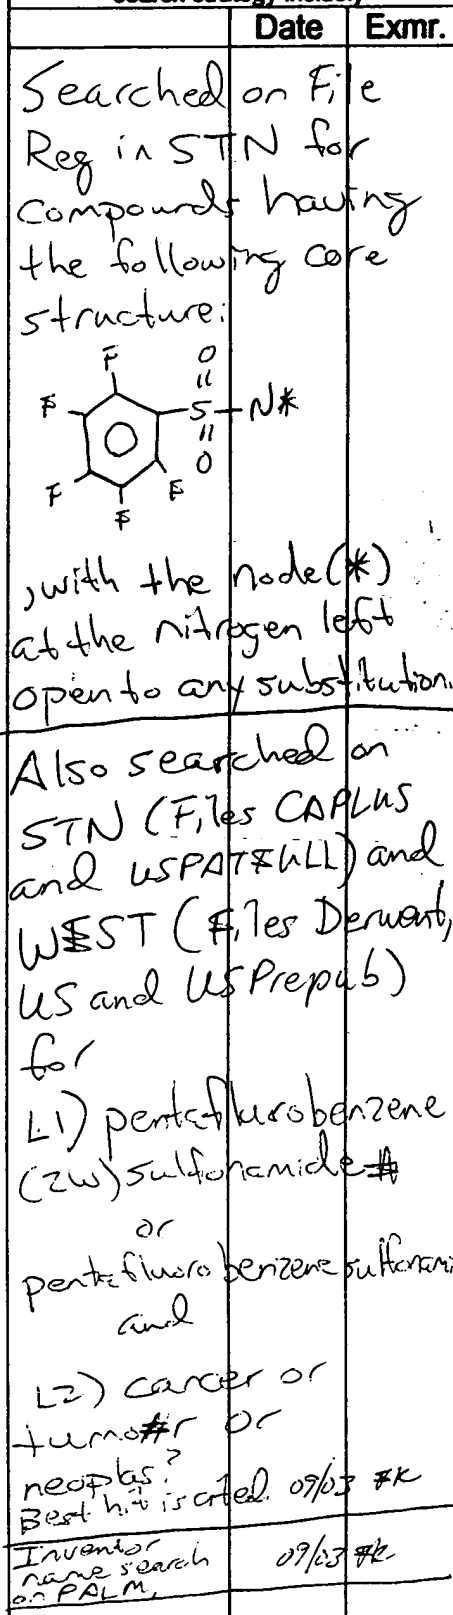 Date Exmr.
Searched on File
Reg in STN for
compounds having
the following core
structure:
F O
F S N*
O
F F
F
, with the node (*)
at the nitrogen left
open to any substitution.
Also searched on
STN (Files CAPLUS
and USPATFULL) and
WEST (Files Derwent,
US and US Prepub)
for
L1) pentaflurobenzene
(2w) sulfonamide#
or
pentafluorobenzenesulfonami
and
L2) cancer or
tumo#r or
neoplas?
Best hit is cited. 09/03 FK
Inventor
name search 09/03 FK
on PALM,